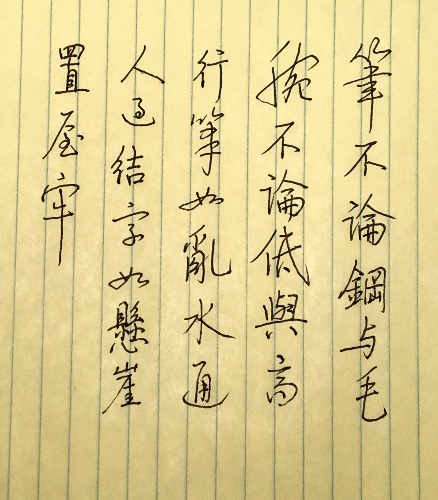 筆不論鋼与毛
腕不論低與高
行筆如亂水通
人過結字如懸崖
置屋牢